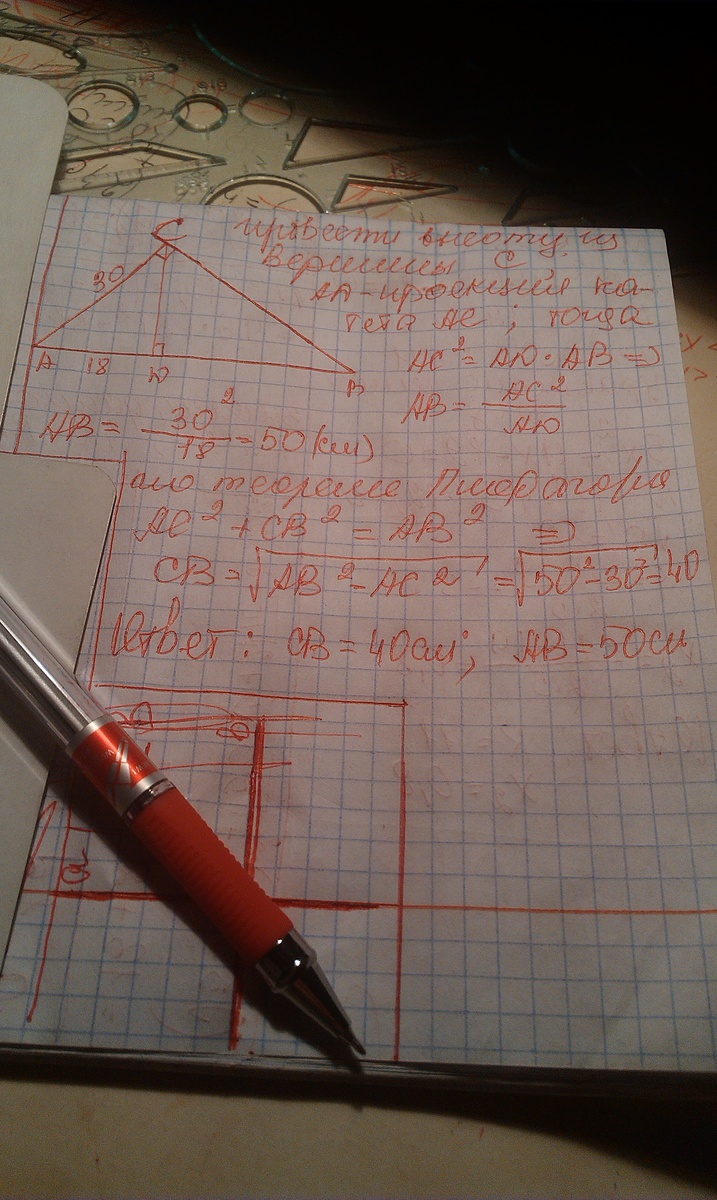 C провести высоту из
вершины C,
30
АД-проекция ка-
тета AC; тогда
A 18 D B
AC² = AD · AB ⇒
AB = AC² / AD
AB = 30² / 18 = 50 (см)
по теореме Пифагора
AC² + CB² = AB² ⇒
CB = √AB² - AC² = √50² - 30² = 40
Ответ: CB = 40см; AB = 50см